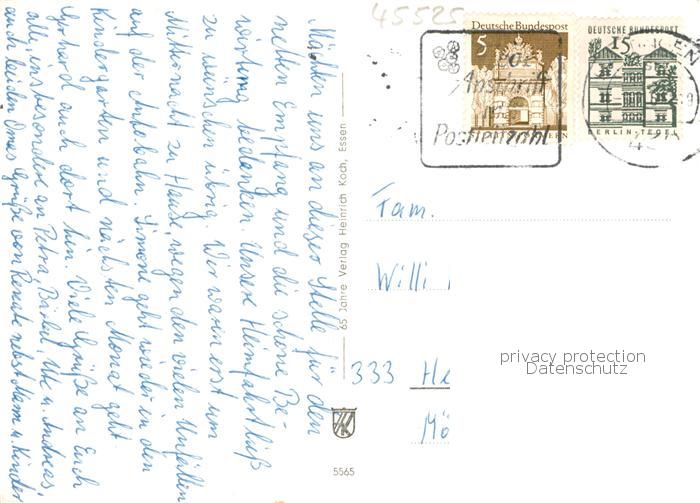 Möchten uns an dieser Stelle für den
netten Empfang und die schöne Be-
wirtung bedanken. Unsere Heimfahrt ließ
zu wünschen übrig. Wir waren erst um
Mitternacht zu Hause, wegen den vielen Unfällen
auf der Autobahn. Simone geht wieder in den
Kindergarten und nächsten Monat geht
Gerhard auch dort hin. Viele Grüße an Euch
alle, insbesondere an Petra, Bärbel, Ute u. Andreas
auch beiden Omas Grüße von Renate nebst Mann u. Kinder
65 Jahre Verlag Heinrich Koch, Essen
5565
45525
Deutsche Bundespost
5
DEUTSCHE BUNDESPOST
15
BERLIN-TEGEL
Anschrift
Postleitzahl
Fam.
Willi
333 He
Mö
privacy protection
Datenschutz